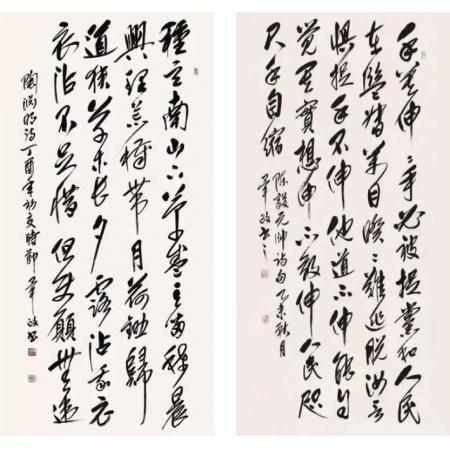 種豆南山下草盛豆苗稀晨
興理荒穢帶月荷鋤歸
道狹草木長夕露沾我衣
衣沾不足惜但使願無違
陶淵明詩丁酉年初夏時節華政書
手莫伸々手必被捉黨和人民
在監督萬目睽々難逃脫汝言
懼捉手不伸他道不伸能自
覺其實想伸不敢伸人民咫
尺手自縮
陳毅元帥詩句乙未秋月
華政書之